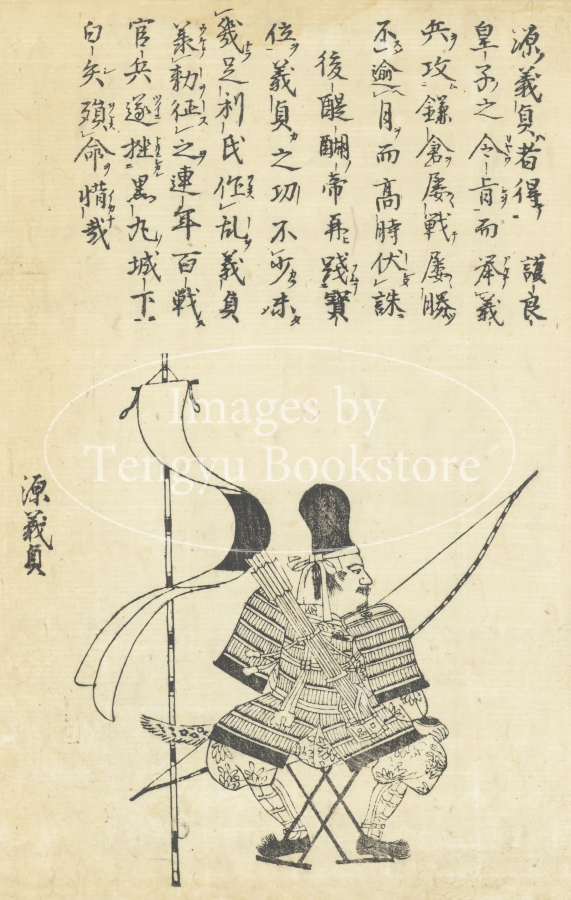 源義貞者得　護良
皇子之令旨而举義
兵攻鎌倉屡戦屡勝
不逾月而高時伏誅
後醍醐帝再践寶
位義貞之功不少未
幾足利氏作乱義貞
蒙勅征之連年百戦
官兵遂挫黒丸城下
白矢殞命惜哉
源義貞
Images by
Tengyu Bookstore